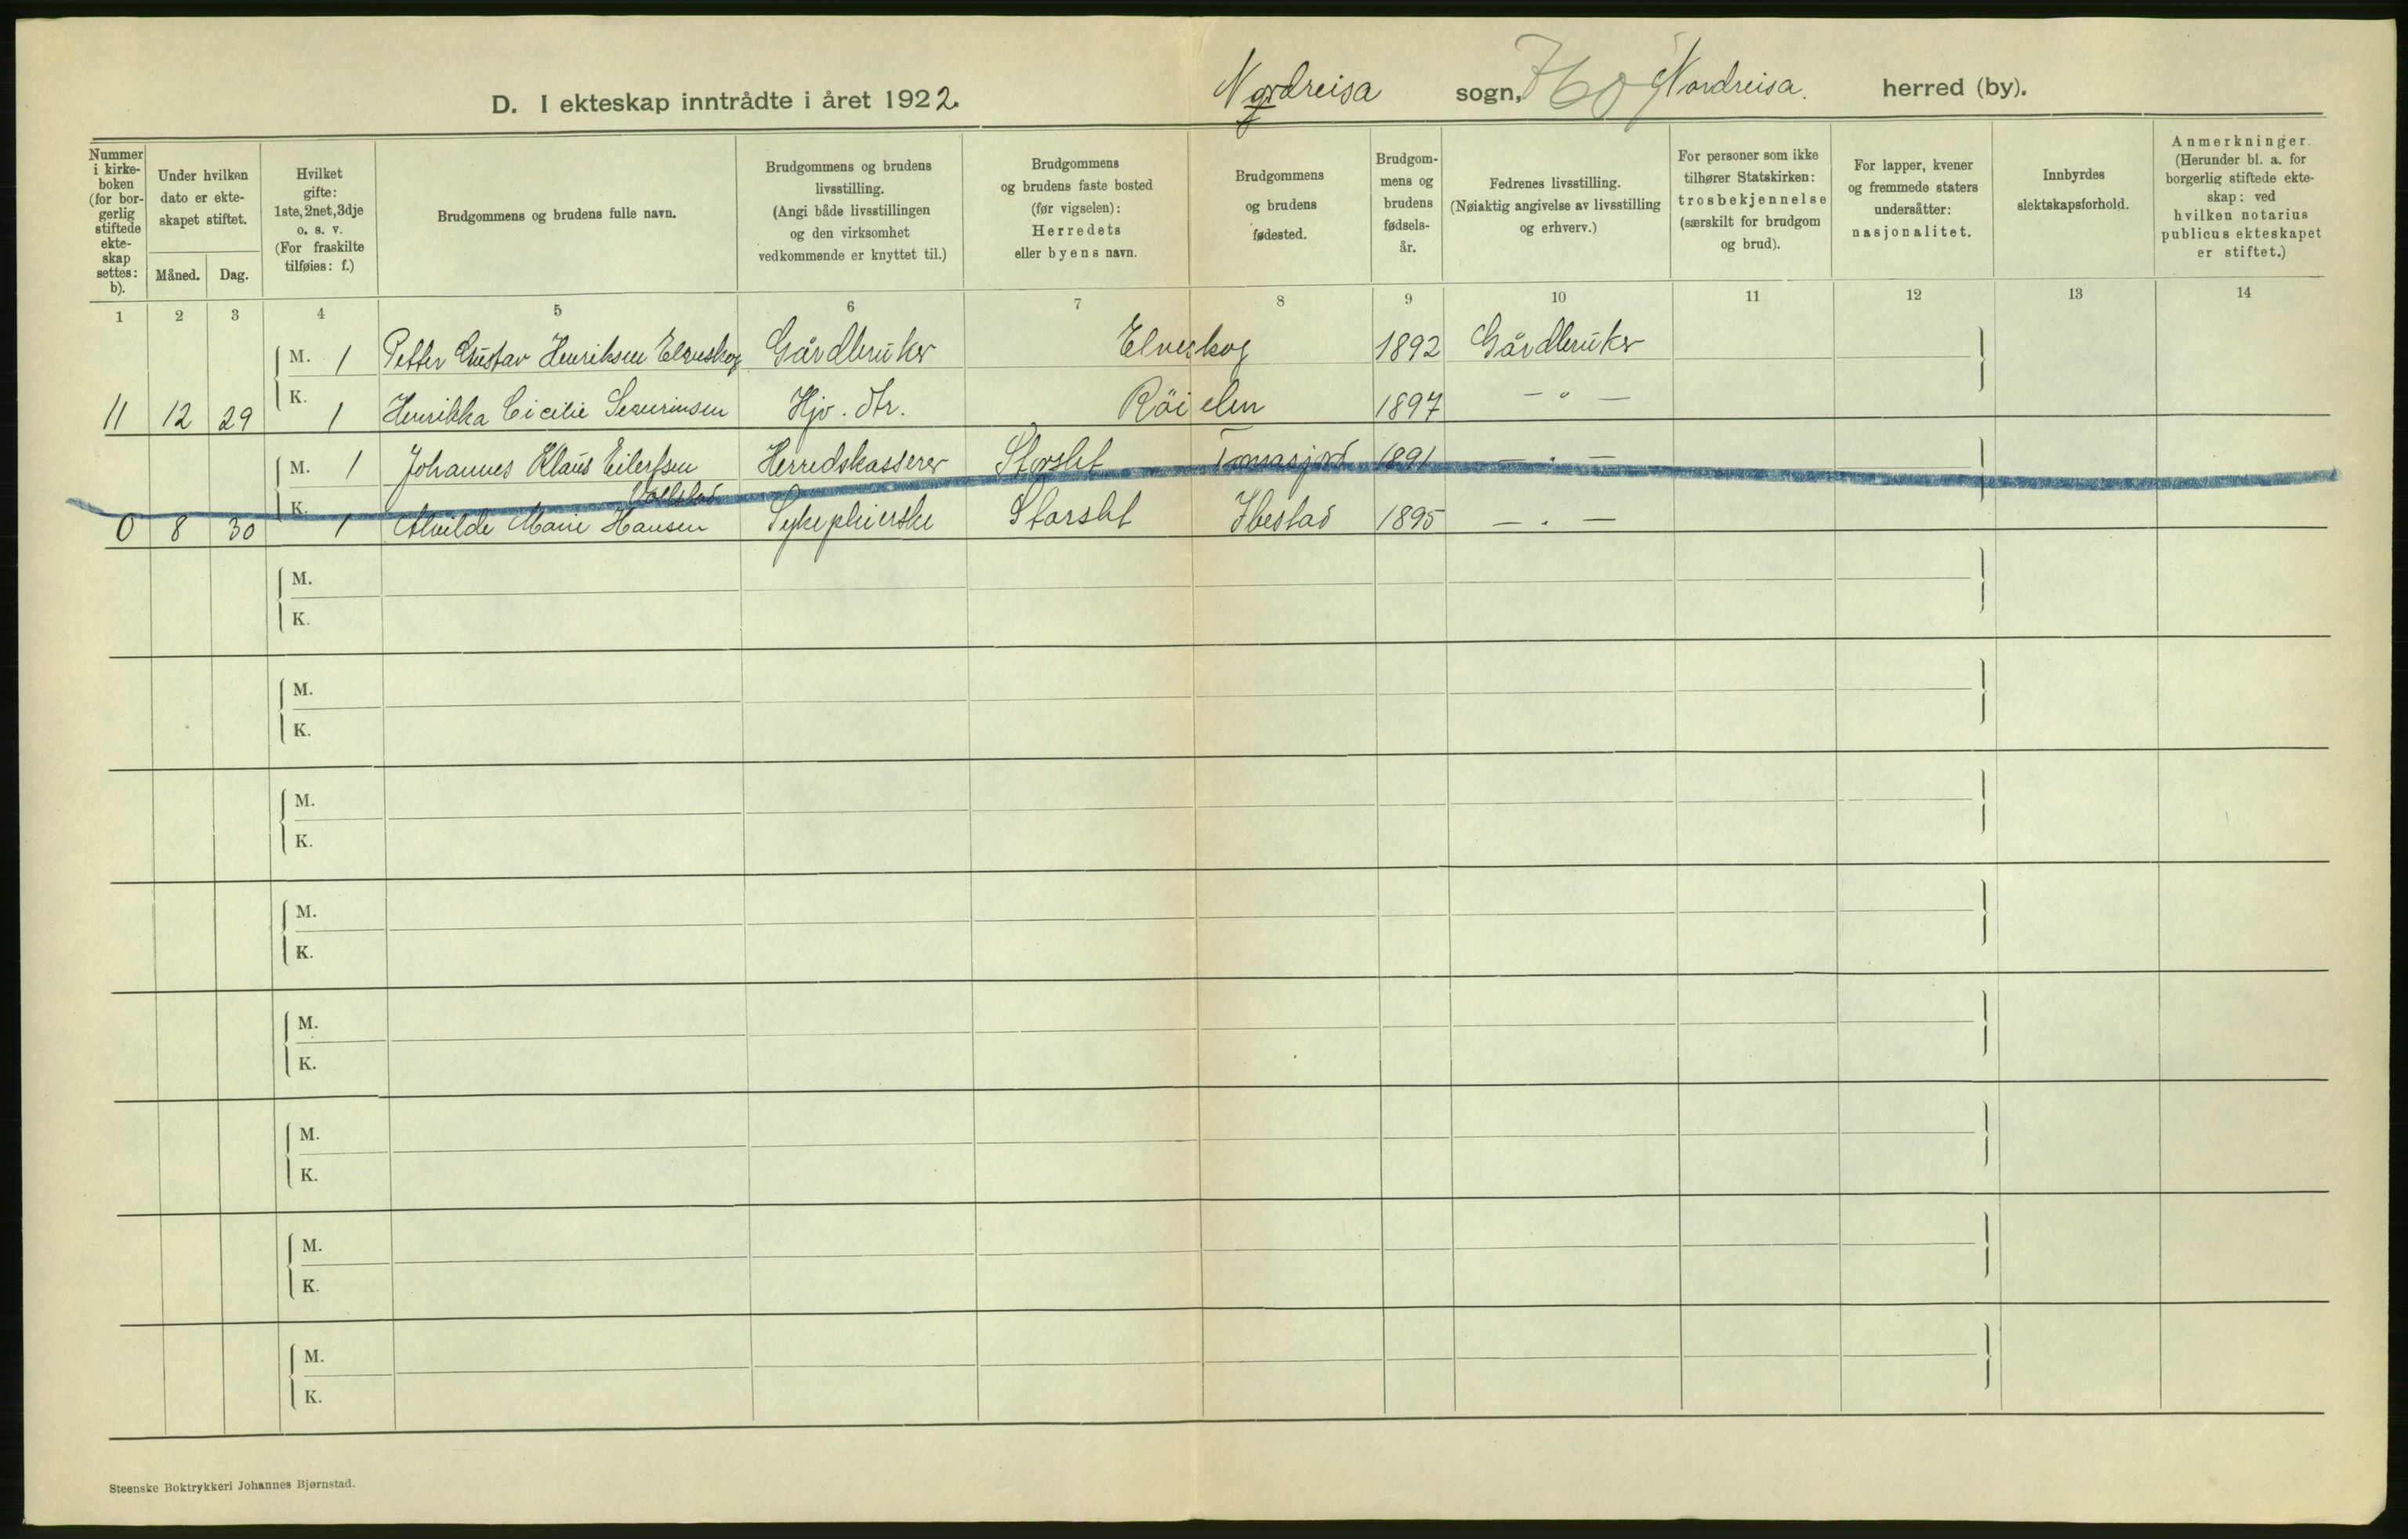 D. I ekteskap inntrådte i året 1922. Nordreisa sogn, 760 Nordreisa. herred (by).
Nummer i kirkeboken (for borgerlig stiftede ekteskap settes: b).
Under hvilken dato er ekteskapet stiftet.
Måned. Dag.
Hvilket gifte: 1ste, 2net, 3dje o. s. v. (For fraskilte tilføies: f.)
Brudgommens og brudens fulle navn.
Brudgommens og brudens livsstilling. (Angi både livsstillingen og den virksomhet vedkommende er knyttet til.)
Brudgommens og brudens faste bosted (før vigselen): Herredets eller byens navn.
Brudgommens og brudens fødested.
Brudgommens og brudens fødselsår.
Fedrenes livsstilling. (Nøiaktig angivelse av livsstilling og erhverv.)
For personer som ikke tilhører Statskirken: trosbekjennelse (særskilt for brudgom og brud).
For lapper, kvener og fremmede staters undersåtter: nasjonalitet.
Innbyrdes slektskapsforhold.
Anmerkninger. (Herunder bl. a. for borgerlig stiftede ekteskap: ved hvilken notarius publicus ekteskapet er stiftet.)
1 2 3 4 5 6 7 8 9 10 11 12 13 14
M. 1 Petter Gustav Henriksen Elveskog Gårdbruker Elveskog 1892 Gårdbruker
11 12 29 K. 1 Henrikka Cicilie Severinsen Hjv. dtr. Röielen 1897 — " —
M. 1 Johannes Klaus Eilertsen Herredskasserer Storslet Tomasjord 1891 — . —
Vollstad
0 8 30 K. 1 Alvilde Marie Hansen Sykepleierske Storslet Ibestad 1895 — . —
M.
K.
M.
K.
M.
K.
M.
K.
M.
K.
M.
K.
M.
K.
M.
K.
Steenske Boktrykkeri Johannes Bjørnstad.